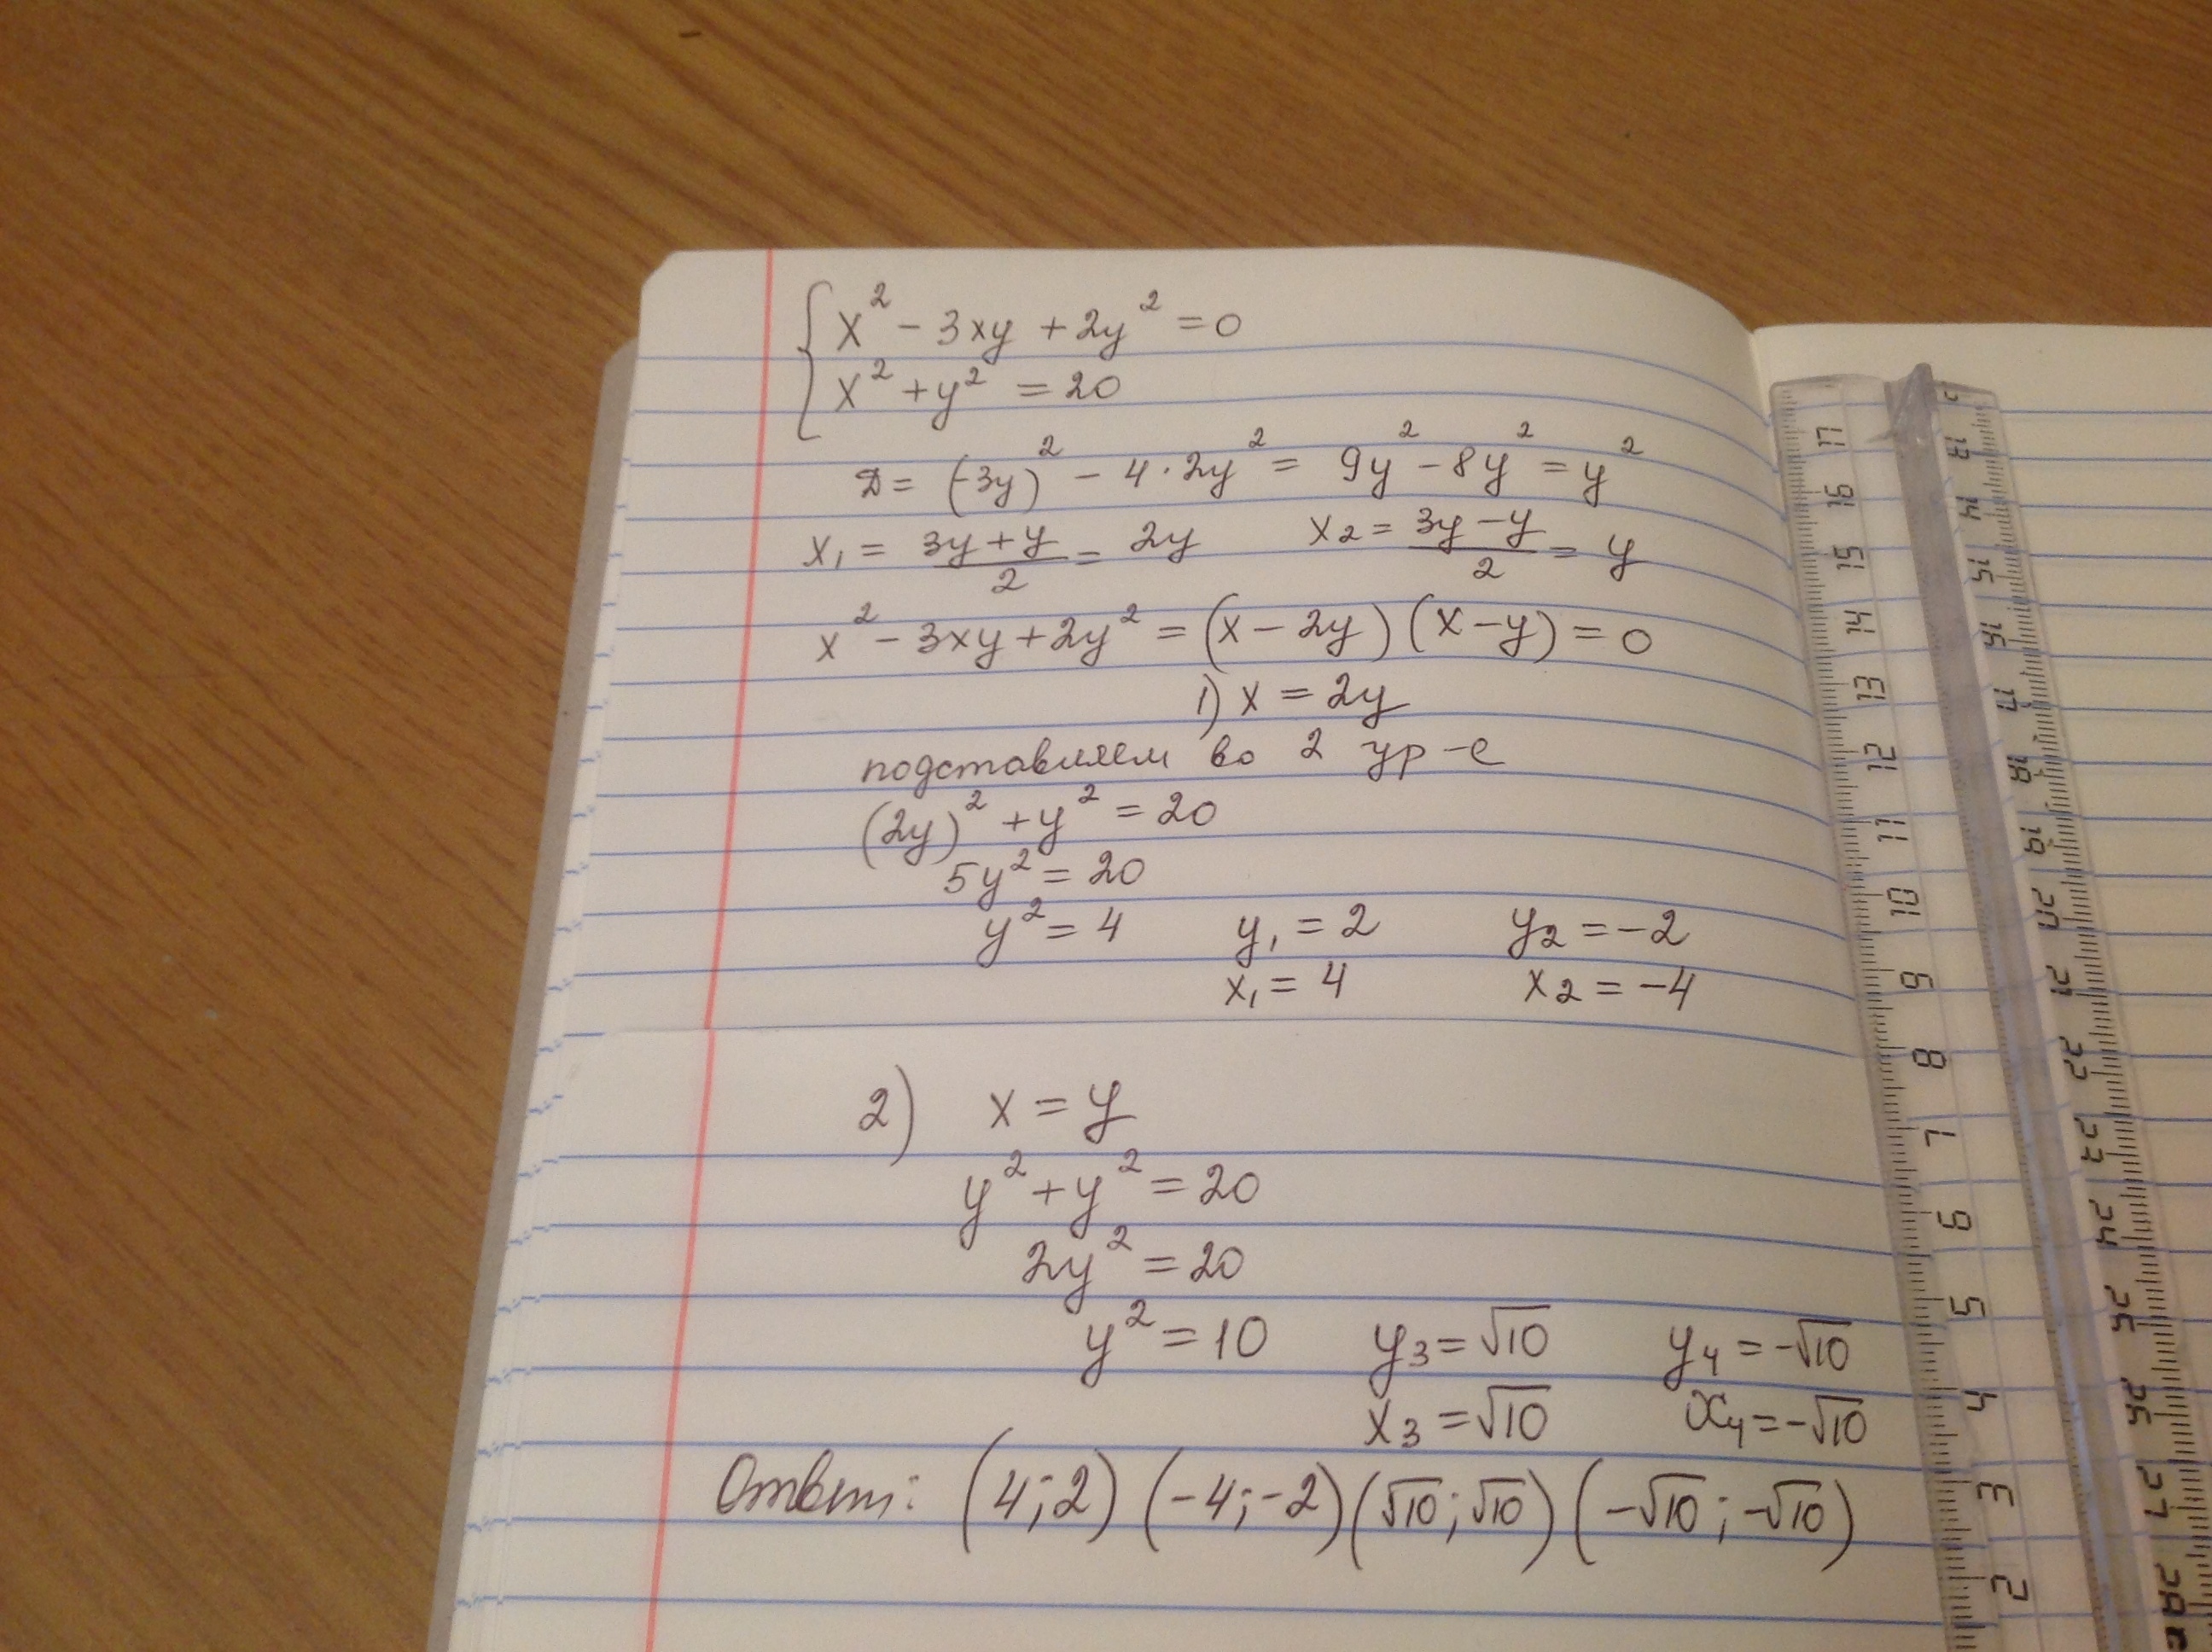 { x² - 3xy + 2y² = 0
x² + y² = 20
D = (-3y)² - 4 · 2y² = 9y² - 8y² = y²
x₁ = (3y + y)/2 = 2y x₂ = (3y - y)/2 = y
x² - 3xy + 2y² = (x - 2y)(x - y) = 0
1) x = 2y
подставляем во 2 ур-е
(2y)² + y² = 20
5y² = 20
y² = 4 y₁ = 2 y₂ = -2
x₁ = 4 x₂ = -4
2) x = y
y² + y² = 20
2y² = 20
y² = 10 y₃ = √10 y₄ = -√10
x₃ = √10 x₄ = -√10
Ответ: (4; 2) (-4; -2) (√10; √10) (-√10; -√10)
17
16
15
14
13
12
11
10
9
8
7
6
5
4
3
2